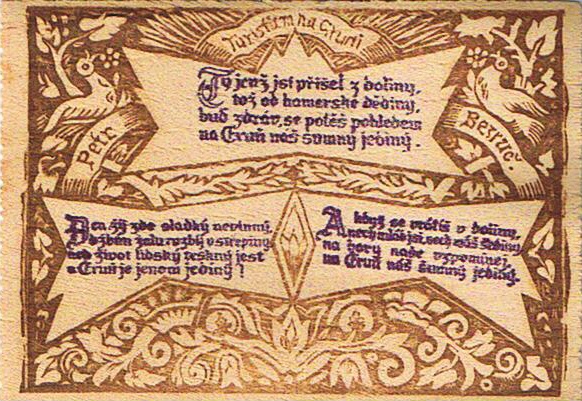 Turistům na Gruni
Ty jenž jsi přišel z doliny,
tož od hamerské dědiny,
buď zdráv, se potěš pohledem
na Gruň náš šumný jediný.
Petr
Bezruč.
Den žij zde sladký nevinný,
džbán žalu rozbij v střepiny
život lidský těskný jest
a Gruň je jenom jediný!
A když se vrátíš v doliny,
nech mlád jsi, nech máš šediny
na hory naše vzpomínej,
na Gruň náš šumný jediný.